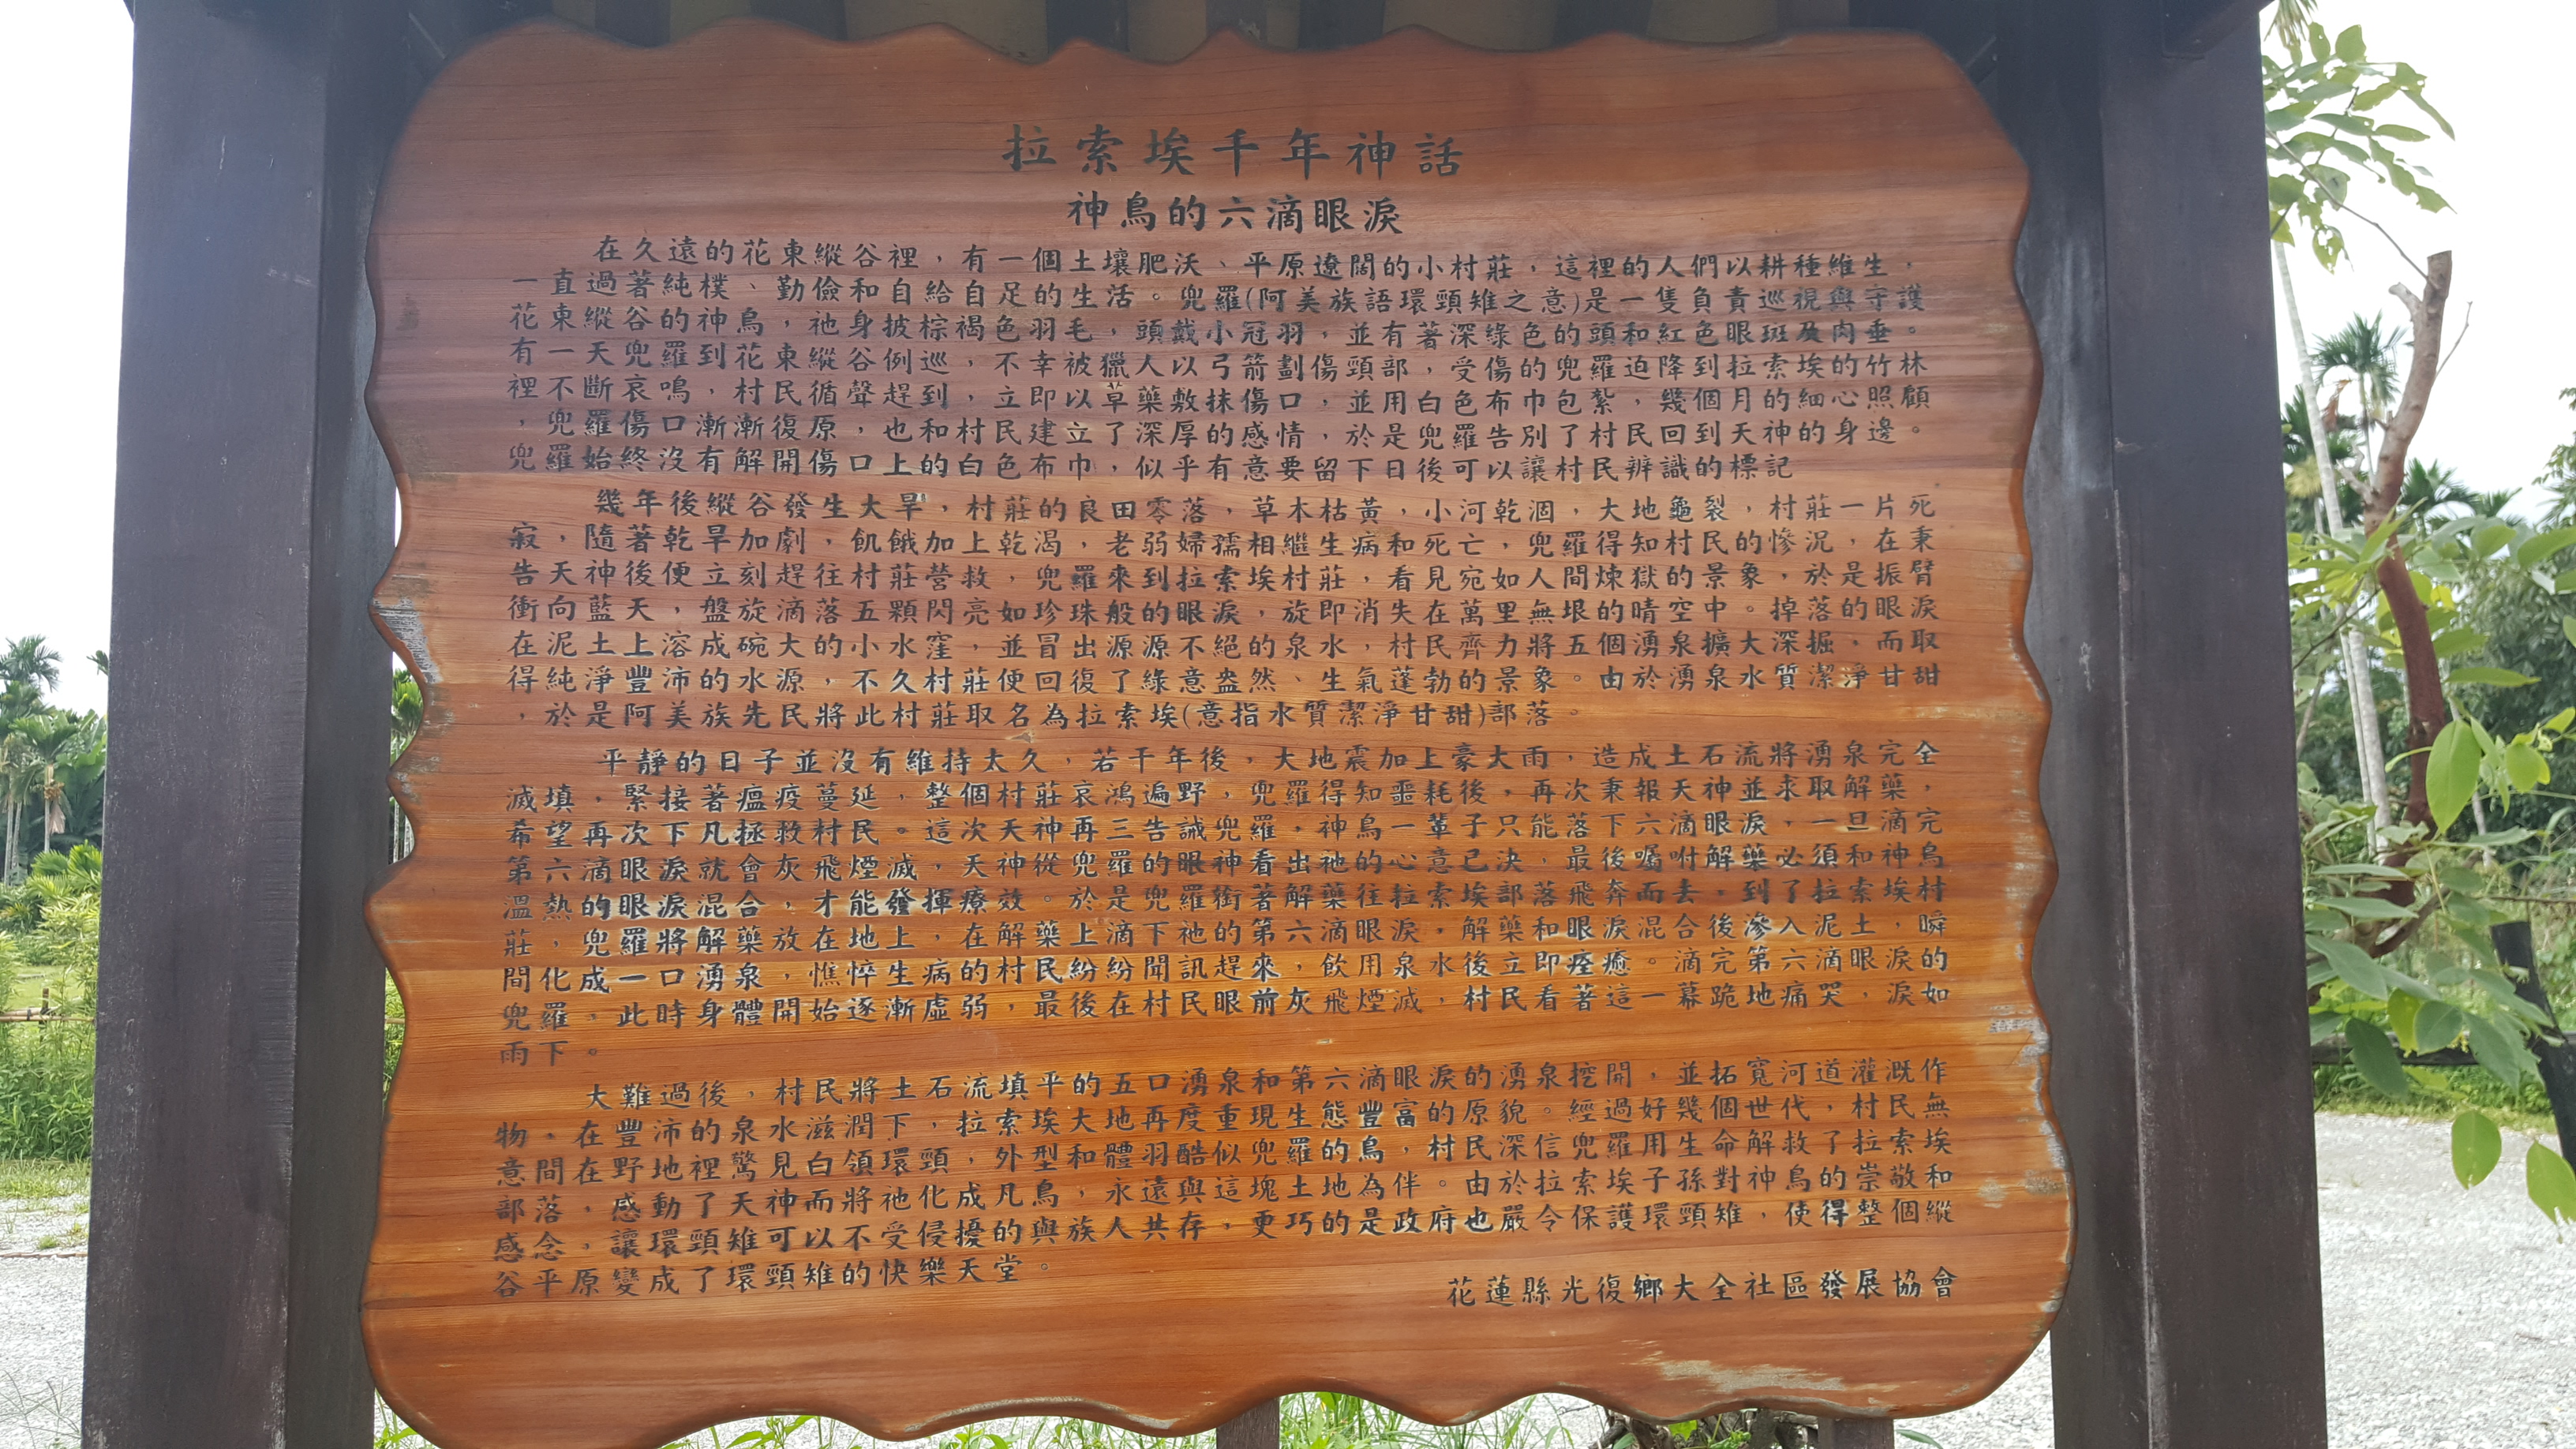 拉索埃千年神話
神鳥的六滴眼淚
在久遠的花東縱谷裡，有一個土壤肥沃、平原遼闊的小村莊，這裡的人們以耕種維生，
一直過著純樸、勤儉和自給自足的生活。兜羅(阿美族語環頸雉之意)是一隻負責巡視與守護
花東縱谷的神鳥，祂身披棕褐色羽毛，頭戴小冠羽，並有著深綠色的頭和紅色眼斑及肉垂。
有一天兜羅到花東縱谷例巡，不幸被獵人以弓箭劃傷頸部，受傷的兜羅迫降到拉索埃的竹林
裡不斷哀鳴，村民循聲趕到，立即以草藥敷抹傷口，並用白色布巾包紮，幾個月的細心照顧
，兜羅傷口漸漸復原，也和村民建立了深厚的感情，於是兜羅告別了村民回到天神的身邊。
兜羅始終沒有解開傷口上的白色布巾，似乎有意要留下日後可以讓村民辨識的標記
幾年後縱谷發生大旱，村莊的良田零落，草木枯黃，小河乾涸，大地龜裂，村莊一片死
寂，隨著乾旱加劇，飢餓加上乾渴，老弱婦孺相繼生病和死亡，兜羅得知村民的慘況，在秉
告天神後便立刻趕往村莊營救，兜羅來到拉索埃村莊，看見宛如人間煉獄的景象，於是振臂
衝向藍天，盤旋滴落五顆閃亮如珍珠般的眼淚，旋即消失在萬里無垠的晴空中。掉落的眼淚
在泥土上溶成碗大的小水窪，並冒出源源不絕的泉水，村民齊力將五個湧泉擴大深掘，而取
得純淨豐沛的水源，不久村莊便回復了綠意盎然、生氣蓬勃的景象。由於湧泉水質潔淨甘甜
，於是阿美族先民將此村莊取名為拉索埃(意指水質潔淨甘甜)部落。
平靜的日子並沒有維持太久，若干年後，大地震加上豪大雨，造成土石流將湧泉完全
滅填，緊接著瘟疫蔓延，整個村莊哀鴻遍野，兜羅得知噩耗後，再次秉報天神並求取解藥，
希望再次下凡拯救村民。這次天神再三告誡兜羅，神鳥一輩子只能落下六滴眼淚，一旦滴完
第六滴眼淚就會灰飛煙滅，天神從兜羅的眼神看出祂的心意已決，最後囑咐解藥必須和神鳥
溫熱的眼淚混合，才能發揮療效。於是兜羅銜著解藥往拉索埃部落飛奔而去，到了拉索埃村
莊，兜羅將解藥放在地上，在解藥上滴下祂的第六滴眼淚，解藥和眼淚混合後滲入泥土，瞬
間化成一口湧泉，憔悴生病的村民紛紛聞訊趕來，飲用泉水後立即痊癒。滴完第六滴眼淚的
兜羅，此時身體開始逐漸虛弱，最後在村民眼前灰飛煙滅，村民看著這一幕跪地痛哭，淚如
雨下。
大難過後，村民將土石流填平的五口湧泉和第六滴眼淚的湧泉挖開，並拓寬河道灌溉作
物，在豐沛的泉水滋潤下，拉索埃大地再度重現生態豐富的原貌。經過好幾個世代，村民無
意間在野地裡驚見白領環頸，外型和體羽酷似兜羅的鳥，村民深信兜羅用生命解救了拉索埃
部落，感動了天神而將祂化成凡鳥，永遠與這塊土地為伴。由於拉索埃子孫對神鳥的崇敬和
感念，讓環頸雉可以不受侵擾的與族人共存，更巧的是政府也嚴令保護環頸雉，使得整個縱
谷平原變成了環頸雉的快樂天堂。
花蓮縣光復鄉大全社區發展協會